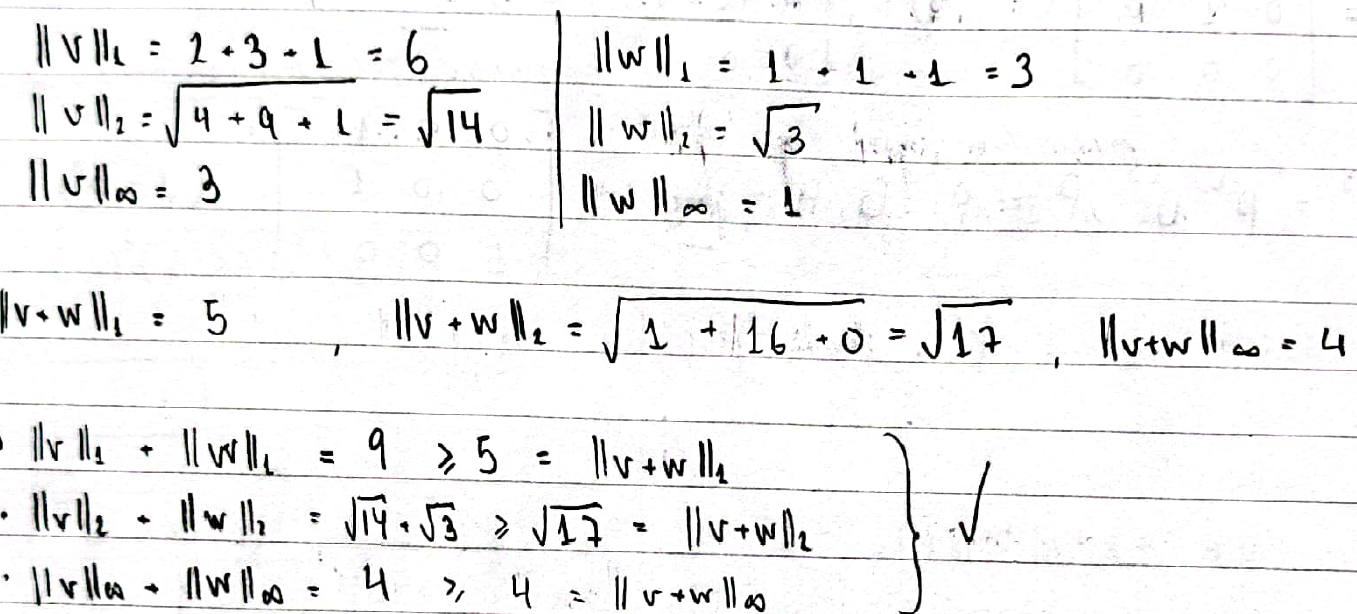 ||v||₁ = 2 + 3 + 1 = 6
||v||₂ = √(4 + 9 + 1) = √14
||v||∞ = 3
||w||₁ = 1 + 1 + 1 = 3
||w||₂ = √3
||w||∞ = 1
||v+w||₁ = 5 , ||v+w||₂ = √(1 + 16 + 0) = √17 , ||v+w||∞ = 4
• ||v||₁ + ||w||₁ = 9 ⩾ 5 = ||v+w||₁
• ||v||₂ + ||w||₂ = √14 + √3 ⩾ √17 = ||v+w||₂ } ✓
• ||v||∞ + ||w||∞ = 4 ⩾ 4 = ||v+w||∞